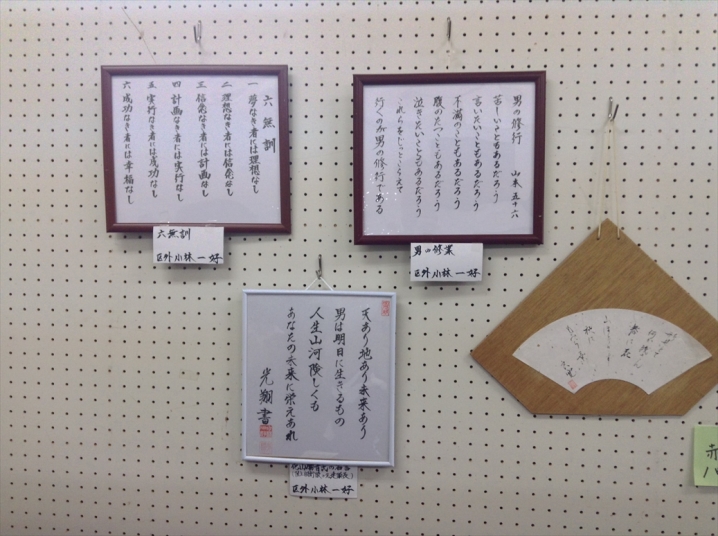 六無訓
一 夢なき者には理想なし
二 理想なき者には信念なし
三 信念なき者には計画なし
四 計画なき者には実行なし
五 実行なき者には成功なし
六 成功なき者には幸福なし
六無訓
区外 小林 一好
男の修行
山本 五十六
苦しいこともあるだろう
言いたいこともあるだろう
不満のこともあるだろう
腹のたつこともあるだろう
泣きたいこともあるだろう
これらをじっとこらえて
行くのが男の修行である
男の修業
区外 小林 一好
天あり地あり未来あり
男は明日に生きるもの
人生山河険しくも
あなたの未来に栄えあれ
光翔書
区外 小林 一好
赤